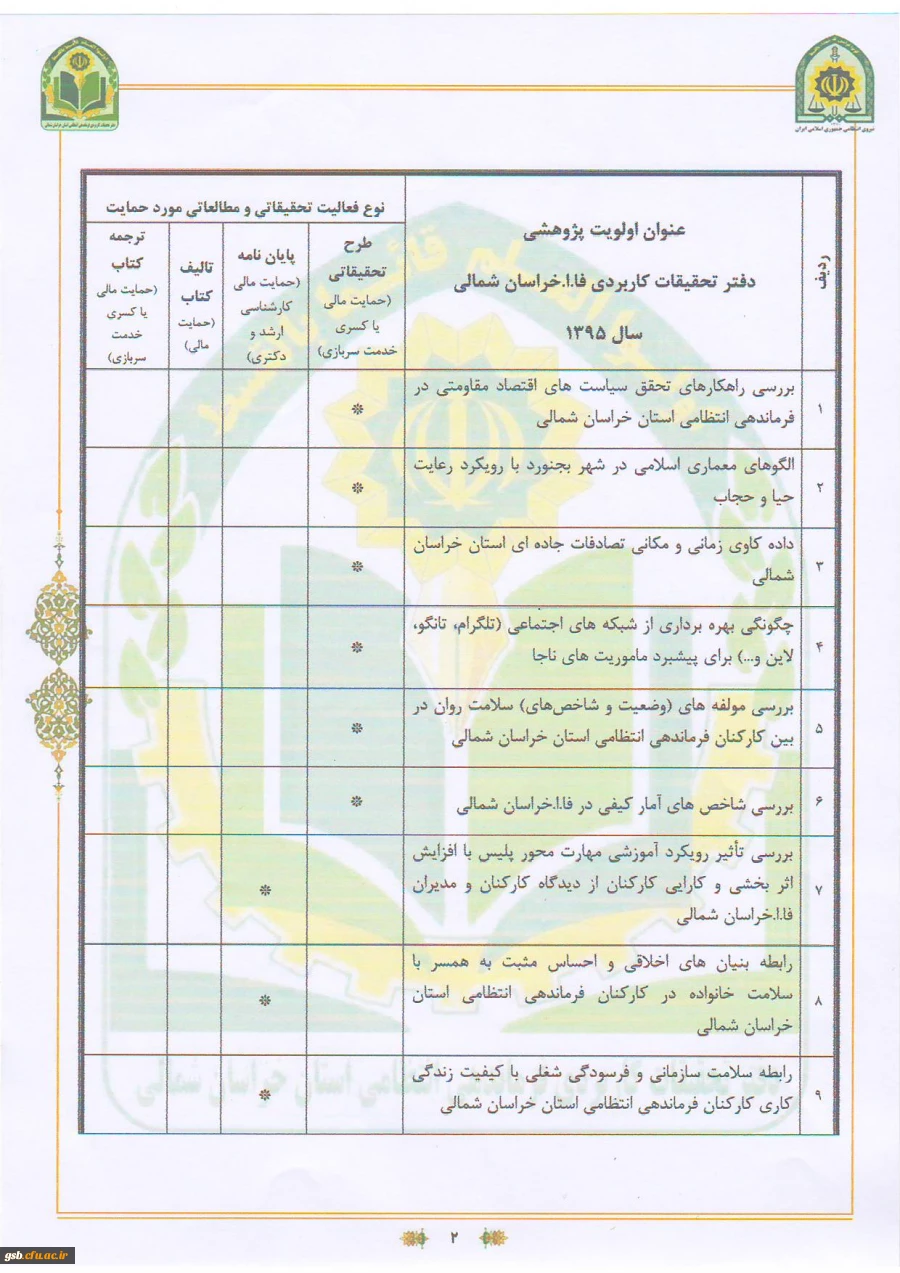 نیروی انتظامی جمهوری اسلامی ایران
ردیف
عنوان اولویت پژوهشی
دفتر تحقیقات کاربردی فا.ا.خراسان شمالی
سال ۱۳۹۵
نوع فعالیت تحقیقاتی و مطالعاتی مورد حمایت
طرح
تحقیقاتی
(حمایت مالی
یا کسری
خدمت سربازی)
پایان نامه
(حمایت مالی
کارشناسی
ارشد و
دکتری)
تالیف
کتاب
(حمایت
مالی)
ترجمه
کتاب
(حمایت مالی
یا کسری
خدمت
سربازی)
۱
بررسی راهکارهای تحقق سیاست های اقتصاد مقاومتی در
فرماندهی انتظامی استان خراسان شمالی
*
۲
الگوهای معماری اسلامی در شهر بجنورد با رویکرد رعایت
حیا و حجاب
*
۳
داده کاوی زمانی و مکانی تصادفات جاده ای استان خراسان
شمالی
*
۴
چگونگی بهره برداری از شبکه های اجتماعی (تلگرام، تانگو،
لاین و...) برای پیشبرد ماموریت های ناجا
*
۵
بررسی مولفه های (وضعیت و شاخص‌های) سلامت روان در
بین کارکنان فرماندهی انتظامی استان خراسان شمالی
*
۶
بررسی شاخص های آمار کیفی در فا.ا.خراسان شمالی
*
۷
بررسی تأثیر رویکرد آموزشی مهارت محور پلیس با افزایش
اثر بخشی و کارایی کارکنان از دیدگاه کارکنان و مدیران
فا.ا.خراسان شمالی
*
۸
رابطه بنیان های اخلاقی و احساس مثبت به همسر با
سلامت خانواده در کارکنان فرماندهی انتظامی استان
خراسان شمالی
*
۹
رابطه سلامت سازمانی و فرسودگی شغلی با کیفیت زندگی
کاری کارکنان فرماندهی انتظامی استان خراسان شمالی
*
۲
gsb.cfu.ac.ir